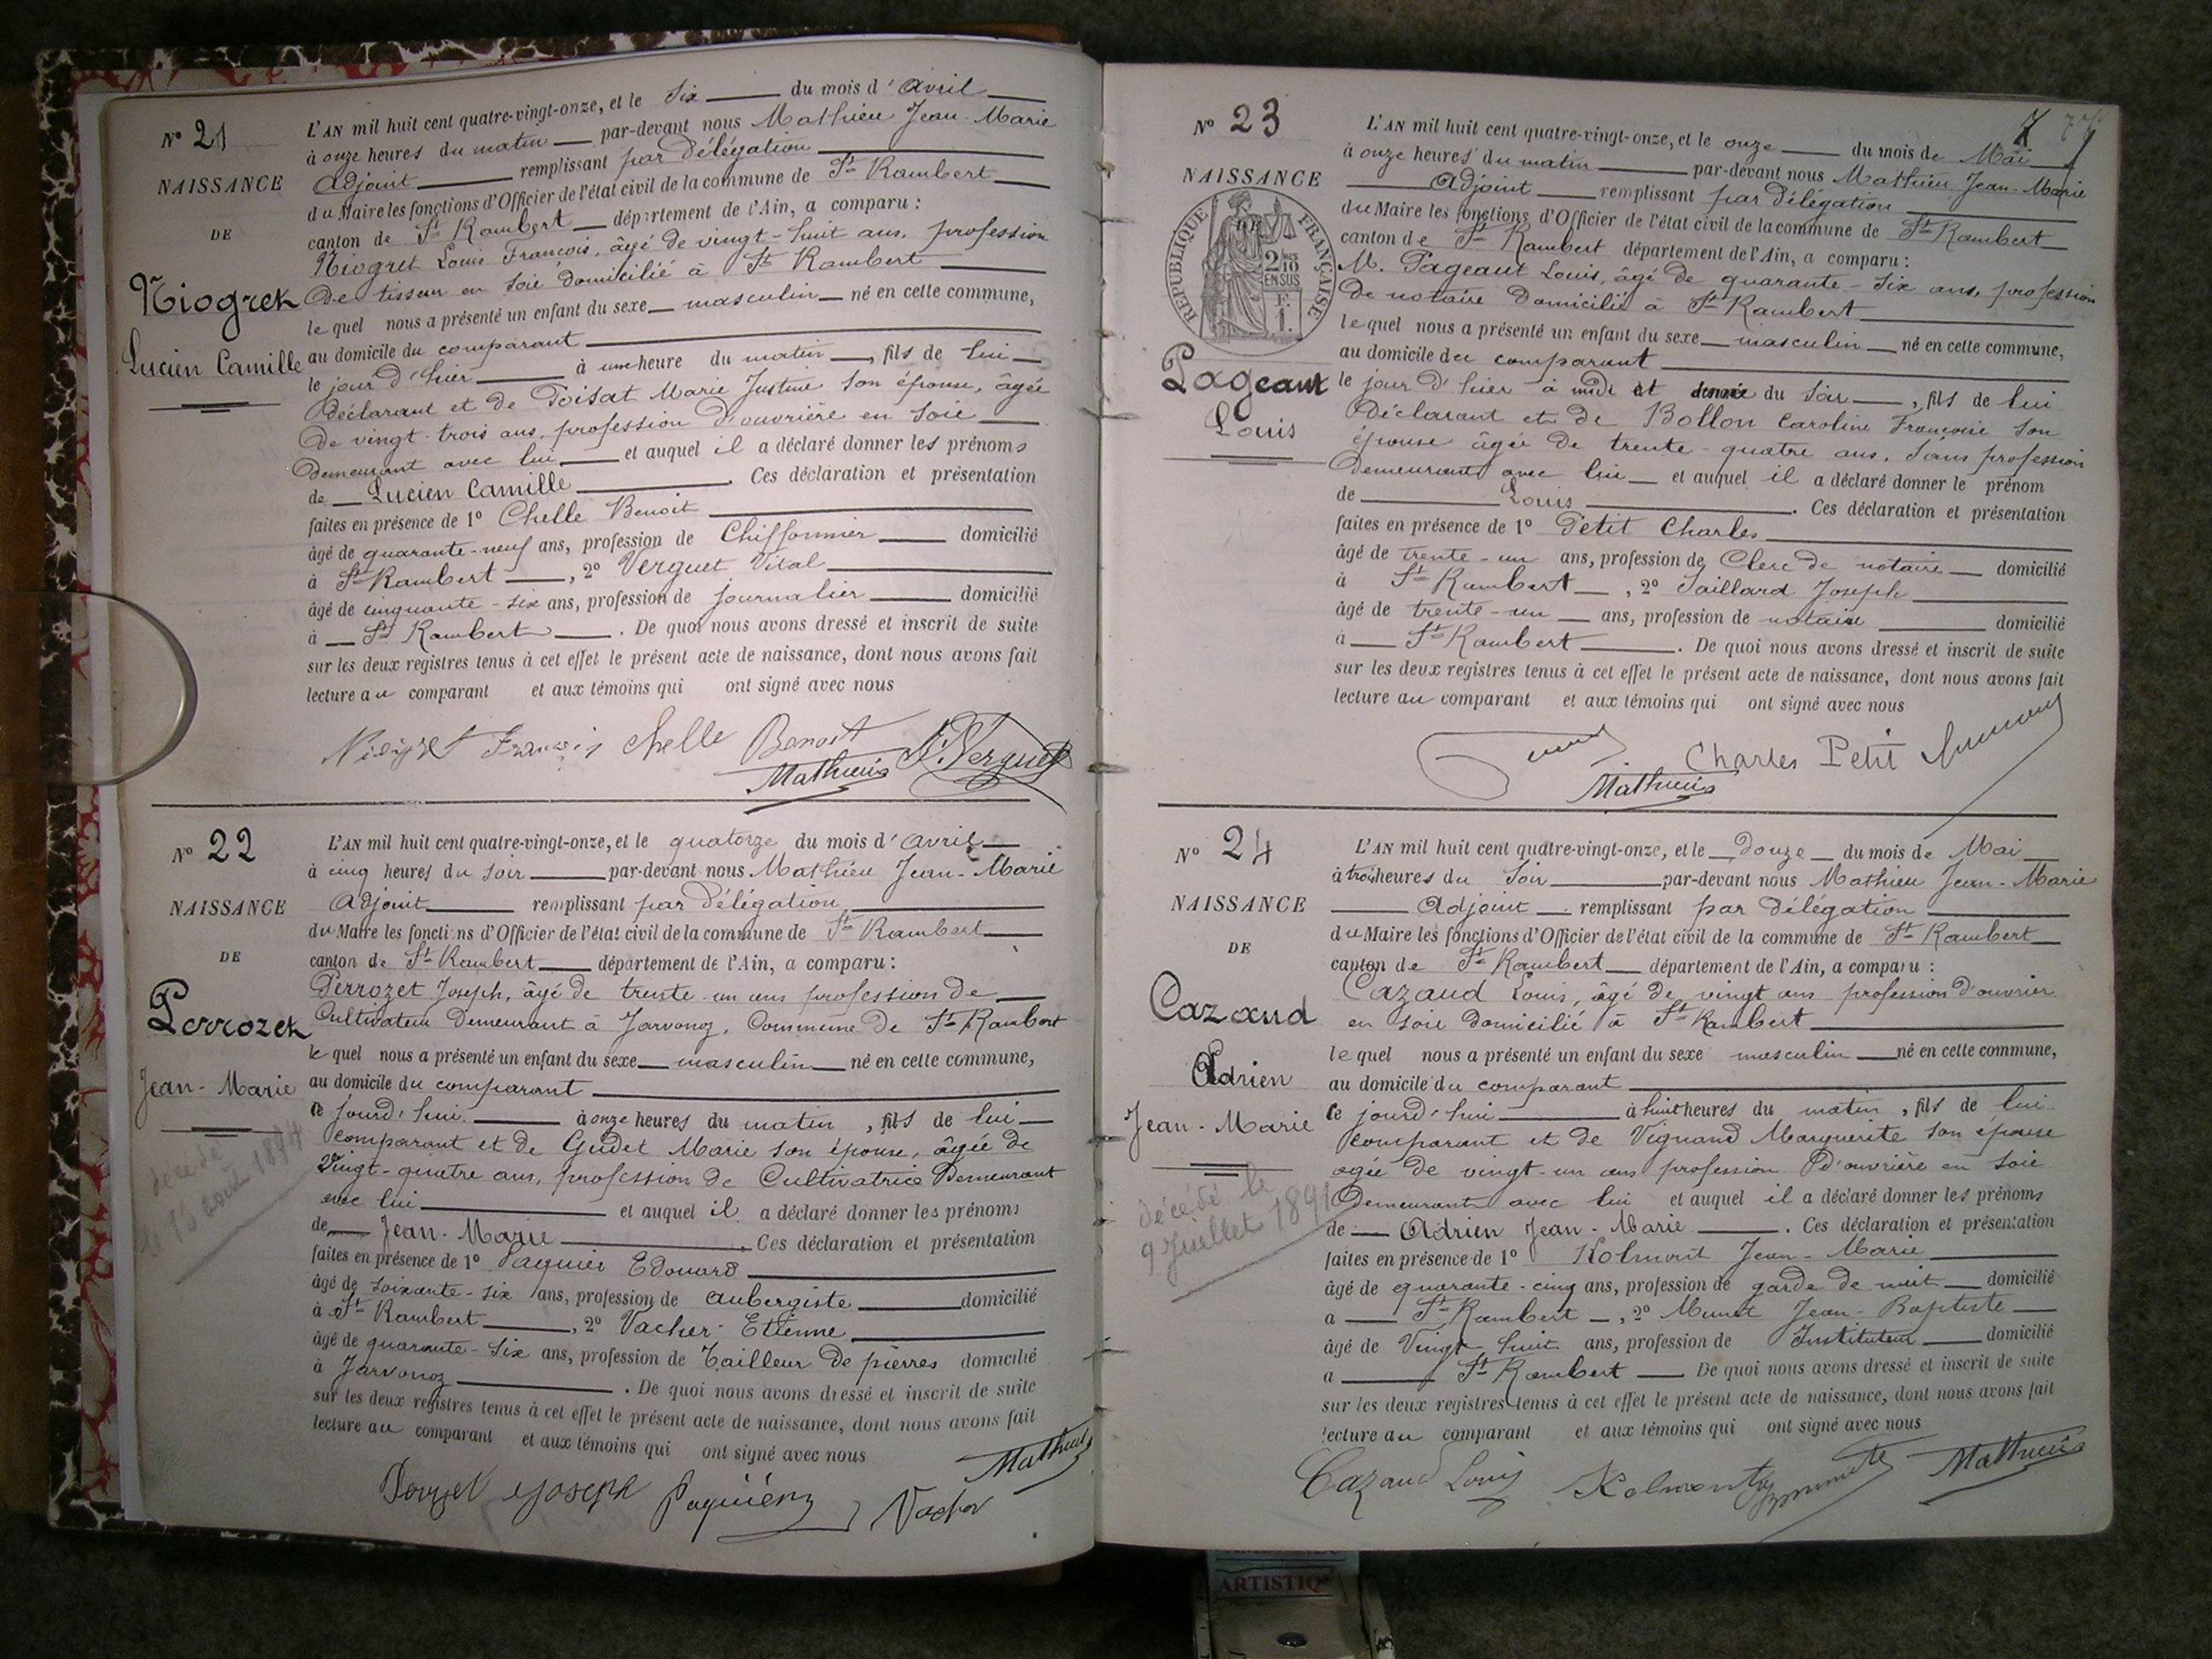 Nº 21
NAISSANCE
DE
Niogret
Lucien Camille
L'AN mil huit cent quatre-vingt-onze, et le six du mois d'avril
à onze heures du matin par-devant nous Mathieu Jean-Marie
Adjoint remplissant par délégation
du Maire les fonctions d'Officier de l'état civil de la commune de St Rambert
canton de St Rambert département de l'Ain, a comparu :
Niogret Louis François, âgé de vingt-huit ans, profession
de tisseur en soie domicilié à St Rambert
lequel nous a présenté un enfant du sexe masculin né en cette commune,
au domicile du comparant
le jour d'hier à une heure du matin, fils de lui
déclarant et de Poisat Marie Justine son épouse, âgée
de vingt-trois ans, profession d'ouvrière en soie
demeurant avec lui et auquel il a déclaré donner les prénoms
de Lucien Camille. Ces déclaration et présentation
faites en présence de 1º Chelle Benoit
âgé de quarante-neuf ans, profession de Chiffonnier domicilié
à St Rambert, 2º Verguet Vital
âgé de cinquante-six ans, profession de journalier domicilié
à St Rambert. De quoi nous avons dressé et inscrit de suite
sur les deux registres tenus à cet effet le présent acte de naissance, dont nous avons fait
lecture au comparant et aux témoins qui ont signé avec nous
Niogret François Chelle Benoit
Mathieu V. Verguet
Nº 22
NAISSANCE
DE
Perrozet
Jean-Marie
décédé
le 13 août 1894
L'AN mil huit cent quatre-vingt-onze, et le quatorze du mois d'avril
à cinq heures du soir par-devant nous Mathieu Jean-Marie
Adjoint remplissant par délégation
du Maire les fonctions d'Officier de l'état civil de la commune de St Rambert
canton de St Rambert département de l'Ain, a comparu :
Perrozet Joseph, âgé de trente-un ans profession de
Cultivateur demeurant à Javornoz, Commune de St Rambert
lequel nous a présenté un enfant du sexe masculin né en cette commune,
au domicile du comparant
ce jourd'hui à onze heures du matin, fils de lui
comparant et de Gudet Marie son épouse, âgée de
vingt-quatre ans, profession de Cultivatrice demeurant
avec lui et auquel il a déclaré donner les prénoms
de Jean-Marie. Ces déclaration et présentation
faites en présence de 1º Paquier Edouard
âgé de soixante-six ans, profession de aubergiste domicilié
à St Rambert, 2º Vacher Etienne
âgé de quarante-six ans, profession de Tailleur de pierres domicilié
à Javornoz. De quoi nous avons dressé et inscrit de suite
sur les deux registres tenus à cet effet le présent acte de naissance, dont nous avons fait
lecture au comparant et aux témoins qui ont signé avec nous
Mathieu
Joseph Vacher
Nº 23
NAISSANCE
DE
RÉPUBLIQUE FRANÇAISE
2/10 EN SUS
Pageaut
Louis
7
L'AN mil huit cent quatre-vingt-onze, et le onze du mois de Mai
à onze heures du matin par-devant nous Mathieu Jean-Marie
Adjoint remplissant par délégation
du Maire les fonctions d'Officier de l'état civil de la commune de St Rambert
canton de St Rambert département de l'Ain, a comparu :
M. Pageaut Louis, âgé de quarante-six ans, profession
de notaire domicilié à St Rambert
lequel nous a présenté un enfant du sexe masculin né en cette commune,
au domicile du comparant
le jour d'hier à midi et demie du soir, fils de lui
déclarant et de Bollon Caroline Françoise son
épouse âgée de trente-quatre ans, sans profession
demeurant avec lui et auquel il a déclaré donner le prénom
de Louis. Ces déclaration et présentation
faites en présence de 1º Petit Charles
âgé de trente-un ans, profession de Clerc de notaire domicilié
à St Rambert, 2º Saillard Joseph
âgé de trente-un ans, profession de notaire domicilié
à St Rambert. De quoi nous avons dressé et inscrit de suite
sur les deux registres tenus à cet effet le présent acte de naissance, dont nous avons fait
lecture au comparant et aux témoins qui ont signé avec nous
Charles Petit
Mathieu
Nº 24
NAISSANCE
DE
Cazaud
Adrien
Jean-Marie
décédé le
9 Juillet 1891
L'AN mil huit cent quatre-vingt-onze, et le douze du mois de Mai
à trois heures du soir par-devant nous Mathieu Jean-Marie
Adjoint remplissant par délégation
du Maire les fonctions d'Officier de l'état civil de la commune de St Rambert
canton de St Rambert département de l'Ain, a comparu :
Cazaud Louis, âgé de vingt ans profession d'ouvrier
en soie domicilié à St Rambert
lequel nous a présenté un enfant du sexe masculin né en cette commune,
au domicile du comparant
ce jourd'hui à huit heures du matin, fils de lui
comparant et de Vignand Marguerite son épouse
agée de vingt-un ans profession d'ouvrière en soie
demeurant avec lui et auquel il a déclaré donner les prénoms
de Adrien Jean-Marie. Ces déclaration et présentation
faites en présence de 1º Kolmont Jean-Marie
âgé de quarante-cinq ans, profession de garde de nuit domicilié
à St Rambert, 2º Munet Jean-Baptiste
âgé de Vingt huit ans, profession de Instituteur domicilié
à St Rambert De quoi nous avons dressé et inscrit de suite
sur les deux registres tenus à cet effet le présent acte de naissance, dont nous avons fait
lecture au comparant et aux témoins qui ont signé avec nous
Cazaud Louis Kolmont Mathieu
ARTISTIQ